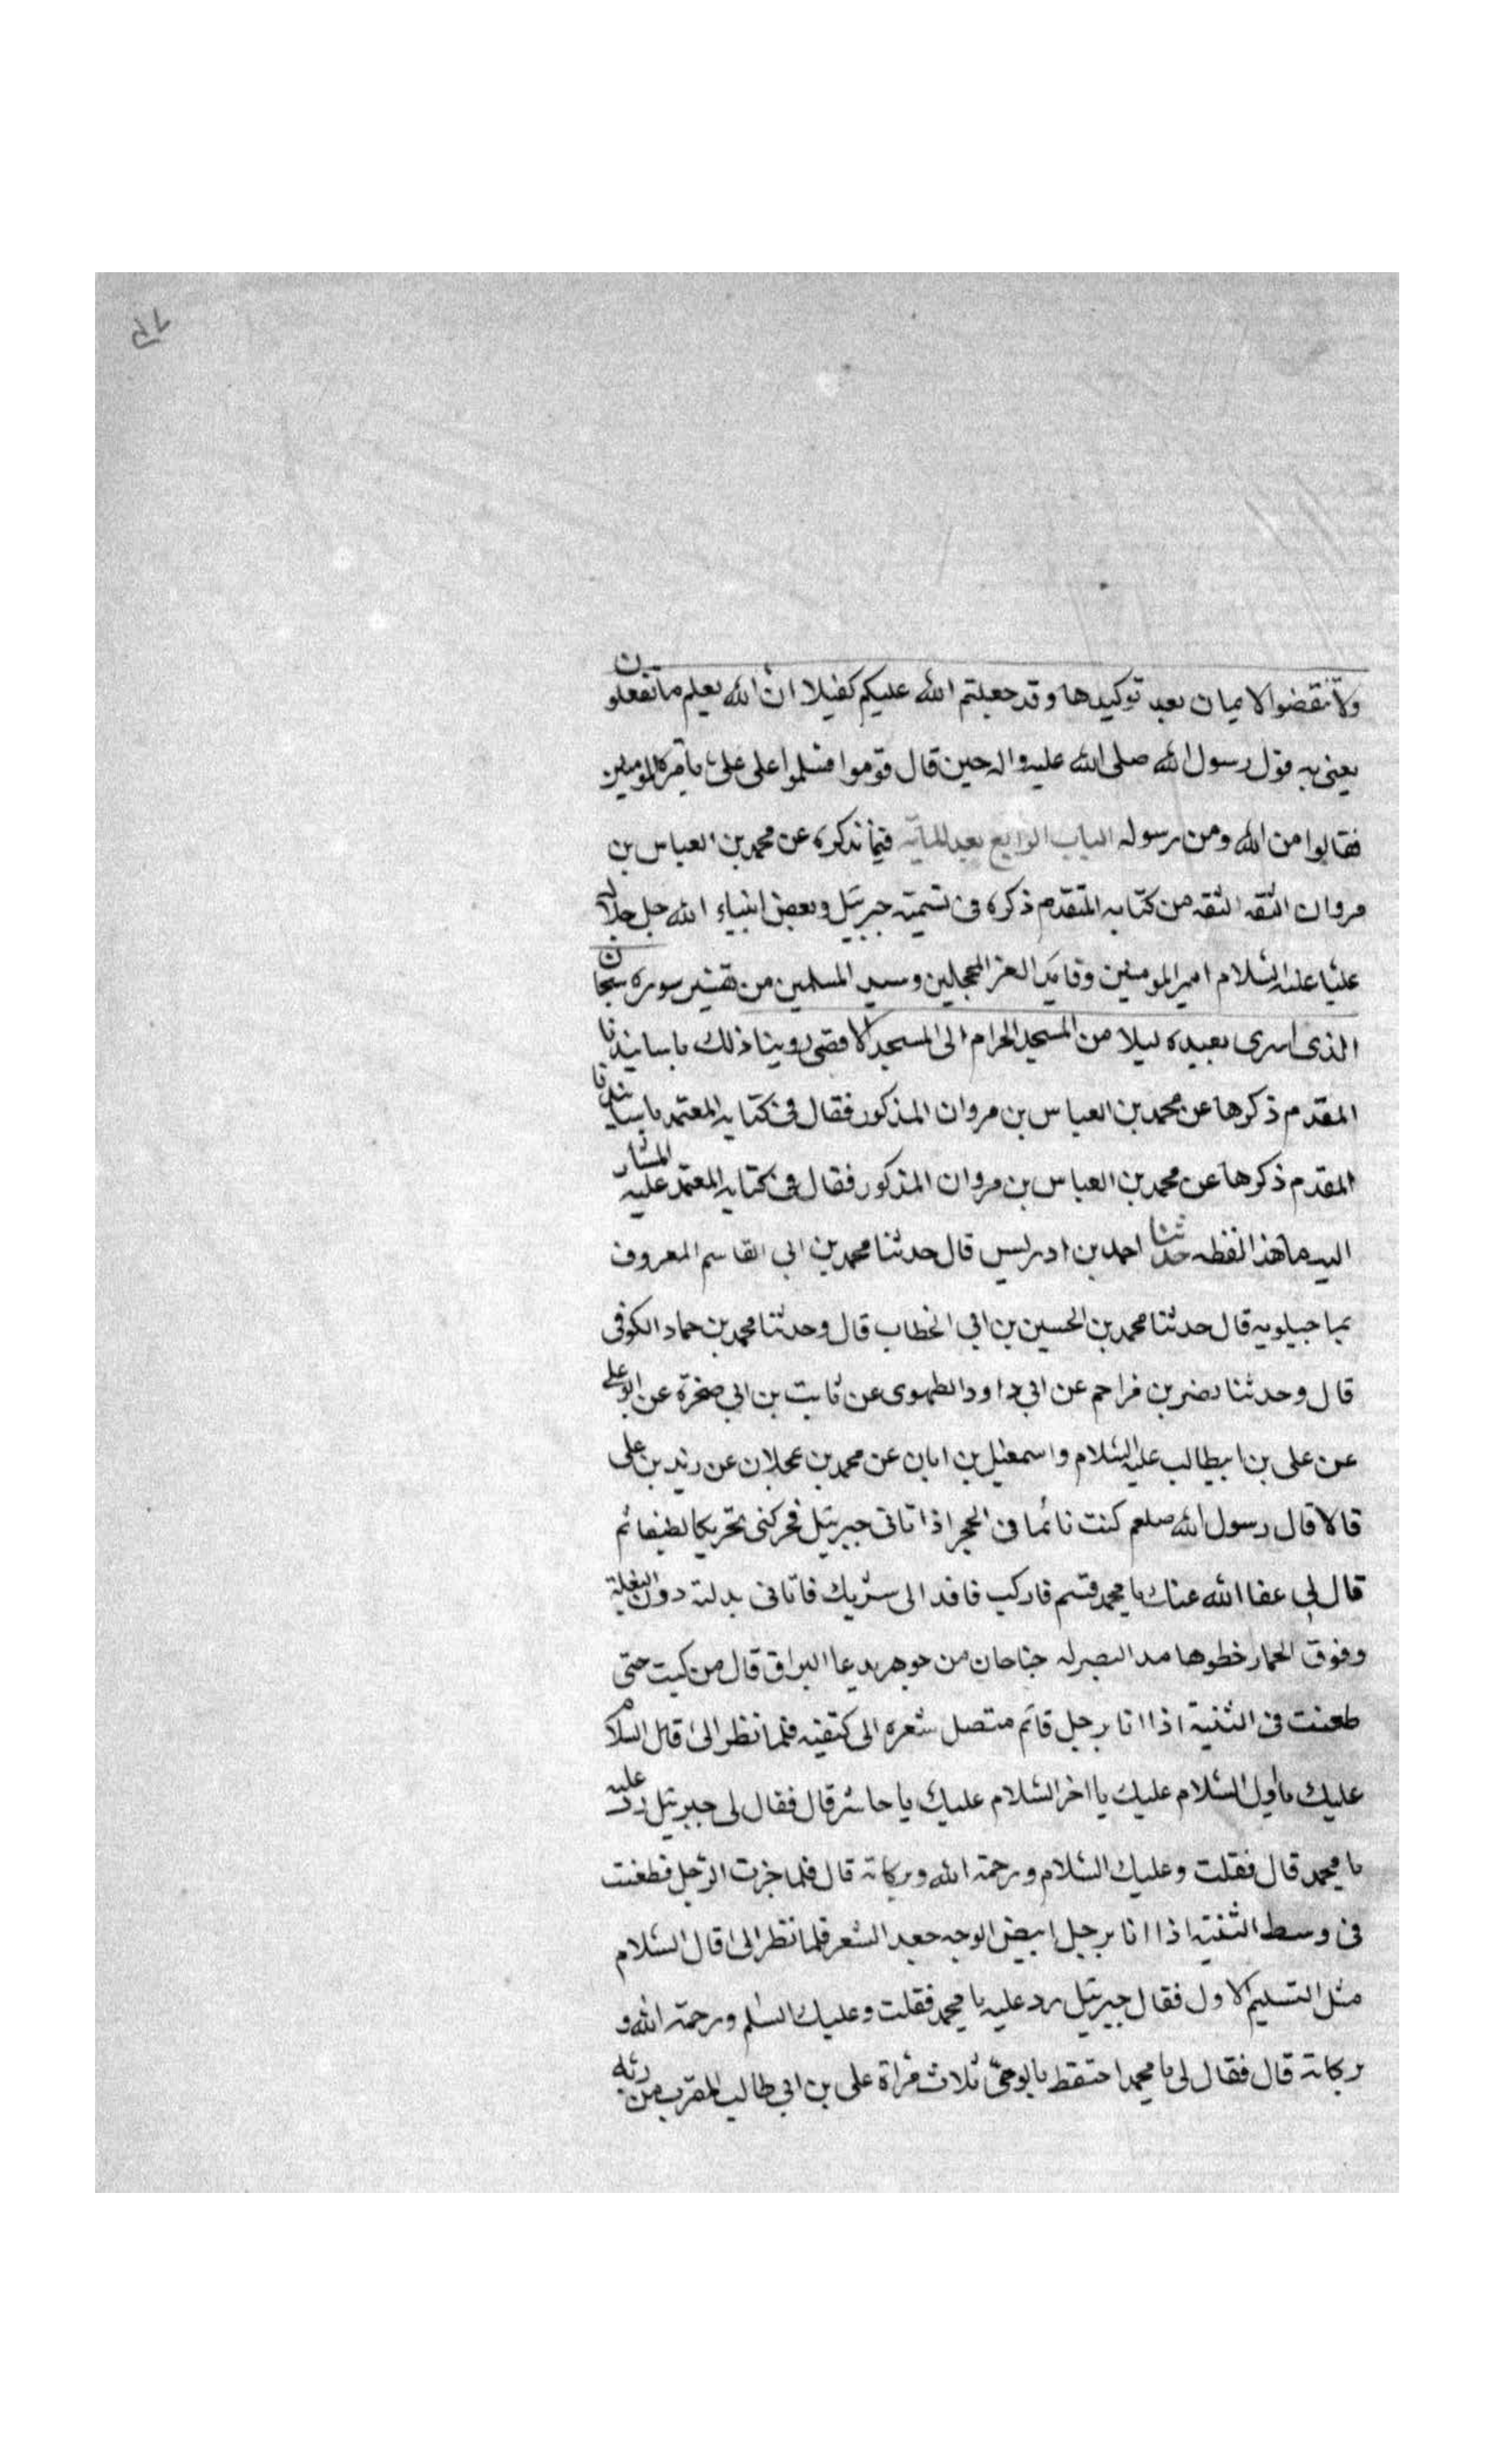 ولا تنقضوا الايمان بعد توكيدها وقد جعلتم الله عليكم كفيلا ان الله يعلم ما تفعلون
يعنى به قول رسول الله صلى الله عليه واله حين قال قوموا فسلموا على على بامرة المومنين
فقالوا من الله ومن رسوله الباب الرابع بعد المآية فيما نذكره عن محمد بن العباس بن
مروان الثقه الثقه من كتابه المتقدم ذكره فى تسمية جبرئيل وبعض انبياء الله جل جلاله
عليا عليه السلام امير المومنين وقايد الغر المحجلين وسيد المسلمين من تفسير سوره سبحان
الذى اسرى بعبده ليلا من المسجد الحرام الى المسجد الاقصى روينا ذلك باسانيدنا
المقدم ذكرها عن محمد بن العباس بن مروان المذكور فقال فى كتابه المعتمد باسانيدنا
المقدم ذكرها عن محمد بن العباس بن مروان المذكور فقال فى كتابه المعتمد عليه المشار
اليه ما هذا لفظه حدثنا احمد بن ادريس قال حدثنا محمد بن ابى القاسم المعروف
بماجيلويه قال حدثنا محمد بن الحسين بن ابى الخطاب قال وحدثنا محمد بن حماد الكوفى
قال وحدثنا نصر بن مزاحم عن ابى داود الطهوى عن ثابت بن ابى صخرة عن ابو على
عن على بن ابيطالب عليه السلام واسمعيل بن ابان عن محمد بن عجلان عن زيد بن على
قالا قال رسول الله صلعم كنت نائما فى الحجر اذ اتانى جبرئيل فحركنى تحريكا لطيفا ثم
قال لى عفا الله عنك يا محمد قسم فاركب فافد الى سربك فاتانى بدلتة دون البغلة
وفوق الحمار خطوها مد البصر له جناحان من جوهر يدعا البراق قال من كبت حتى
طعنت فى الثنية اذا انا برجل قائم متصل شعره الى كتفيه فلما نظر الى قال السلام
عليك يا اول السلام عليك يا اخر السلام عليك يا حاشر قال فقال لى جبرئيل رد عليه
يا محمد قال فقلت وعليك السلام ورحمة الله وبركاته قال فلما جزت الرجل فطعنت
فى وسط الثنية اذا انا برجل ابيض الوجه جعد الشعر فلما نظر الى قال السلام
مثل التسليم الاول فقال جبرئيل رد عليه يا محمد فقلت وعليك السلم ورحمة الله و
بركاته قال فقال لى يا محمد احتفظ بالوصى ثلاث مراة على بن ابى طالب المقرب من ربه